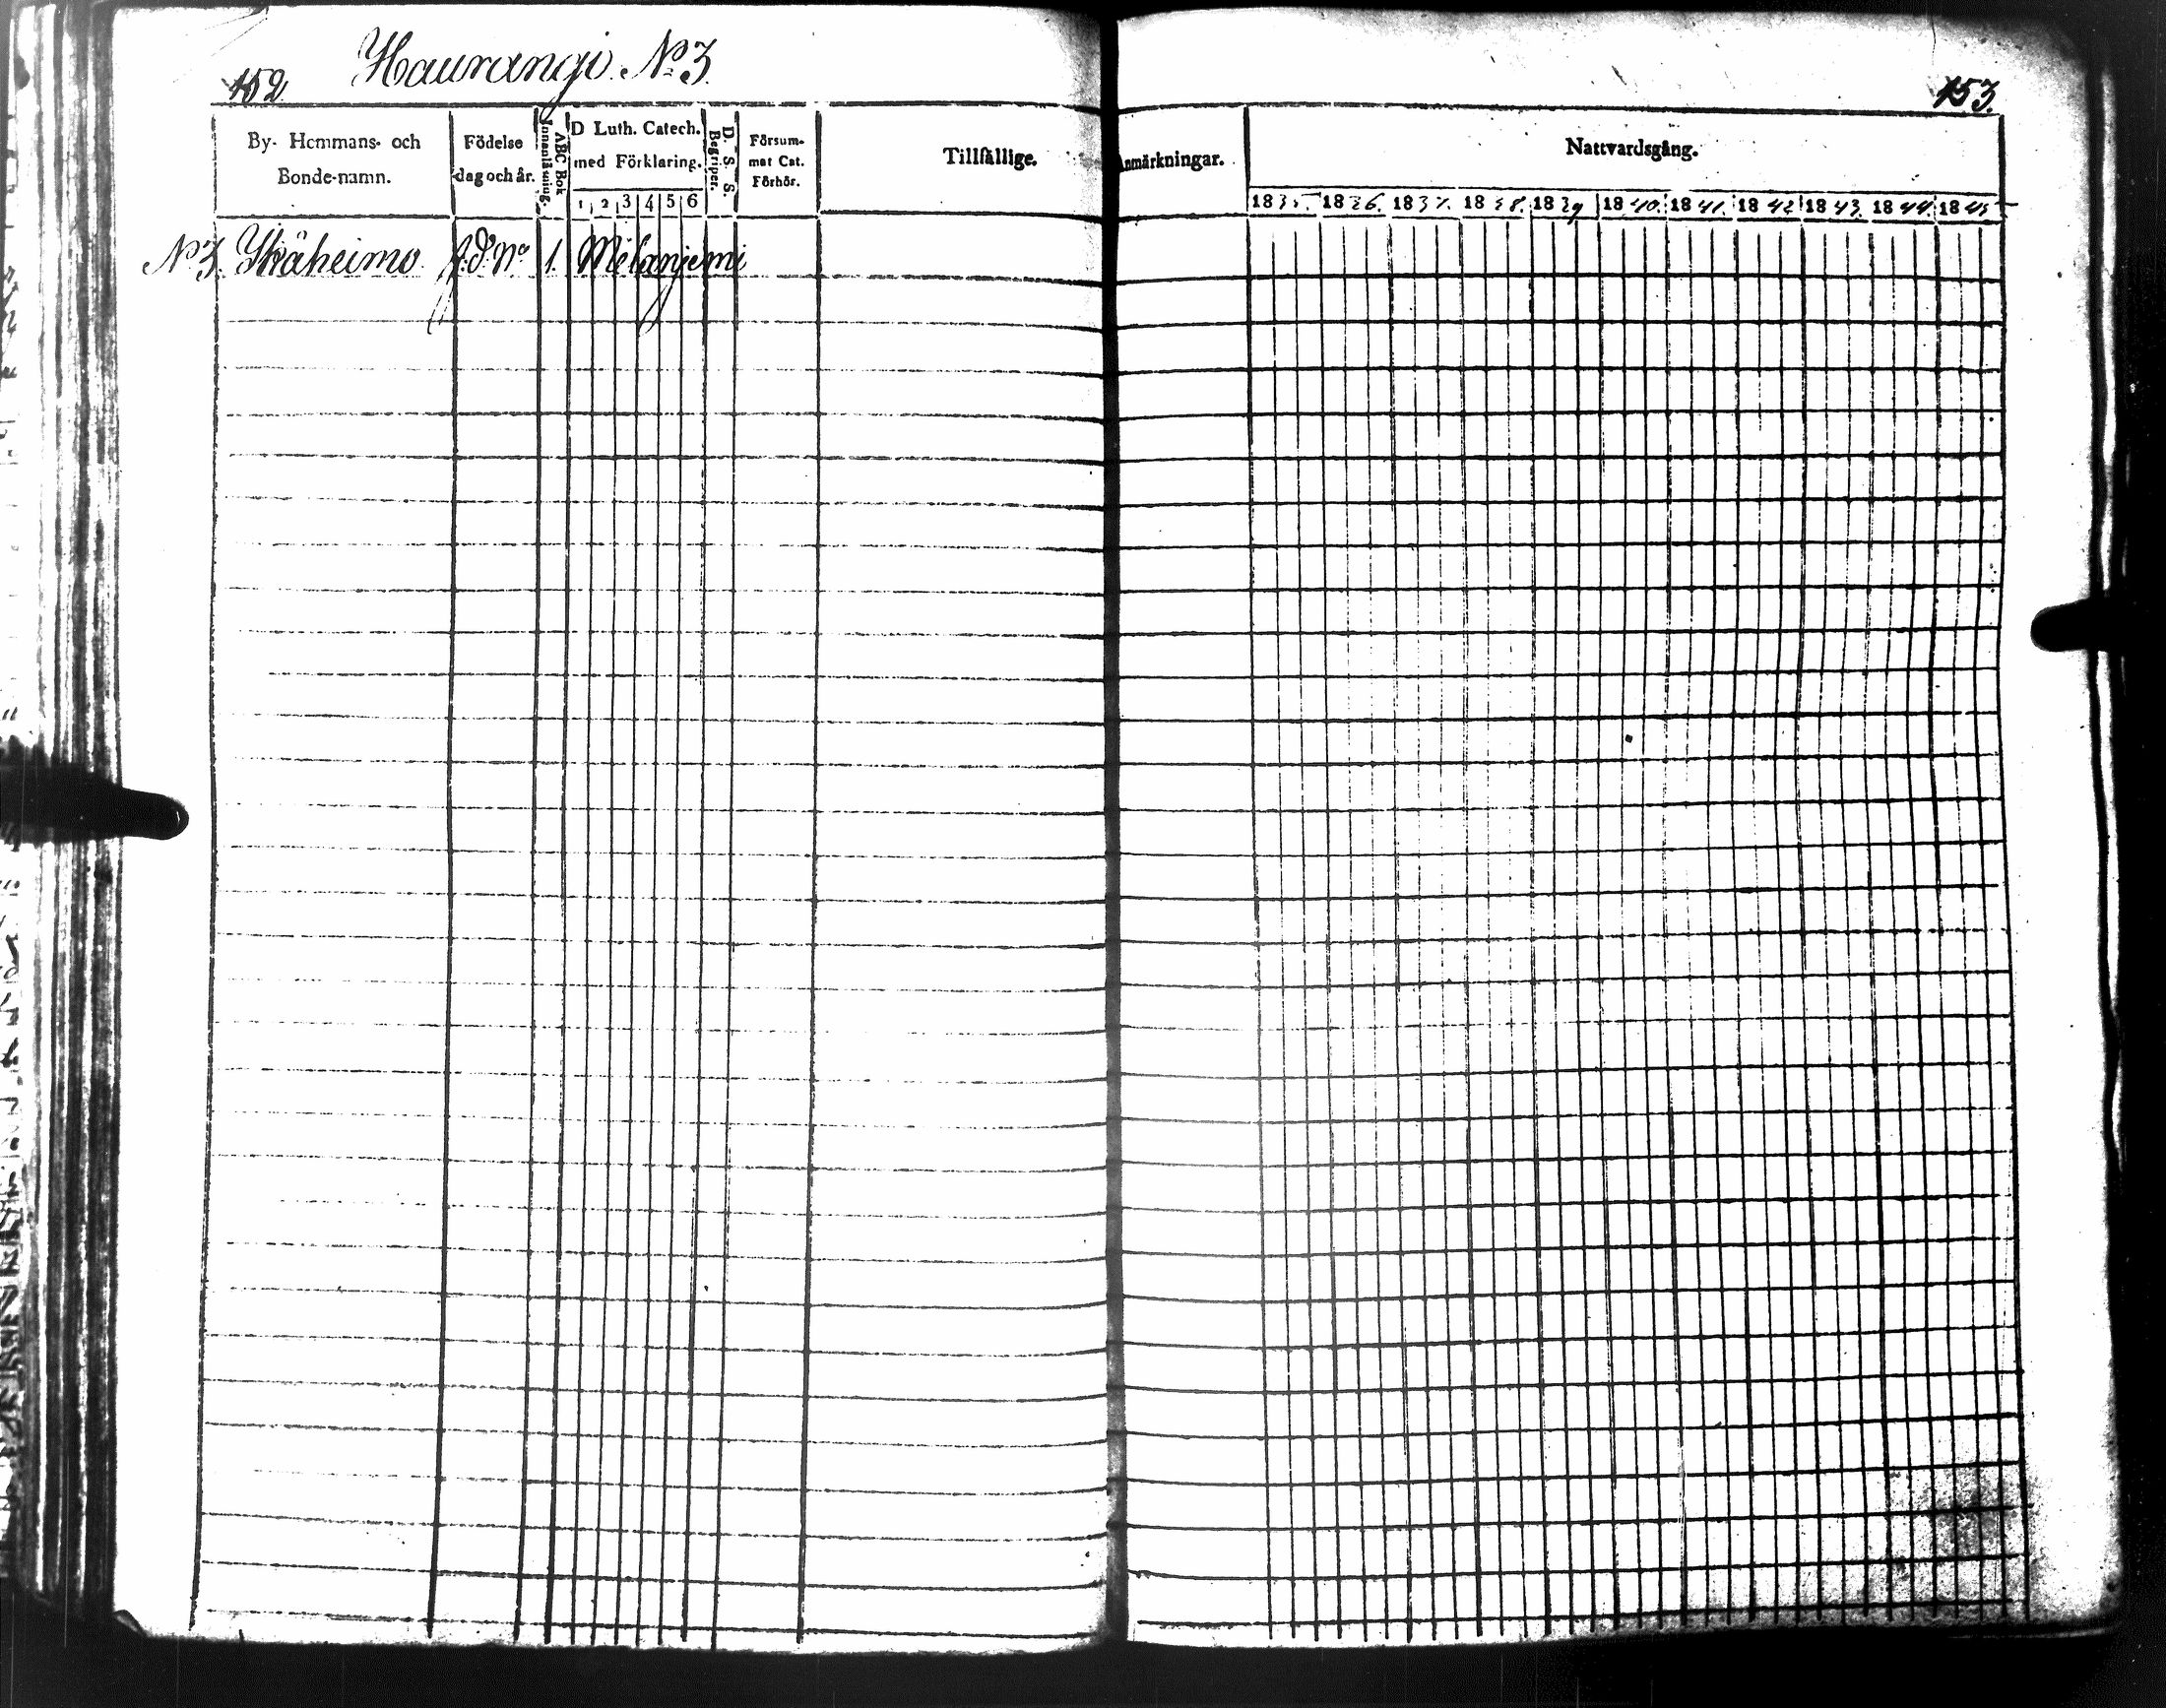 152 Haurangi. No 3. 153.
By- Hemmans- och Bonde-namn.
Födelse dag och år.
Innanläsning.
ABC Bok
D Luth. Catech. med Förklaring.
1 2 3 4 5 6
D. S. S. Begriper.
Försum- mat Cat. Förhör.
Tillfällige. Anmärkningar.
Nattvardsgång.
1835. 1836. 1837. 1838. 1839 1840. 1841. 1842 1843. 1844. 1845
No 3. Ykäheimo No 1